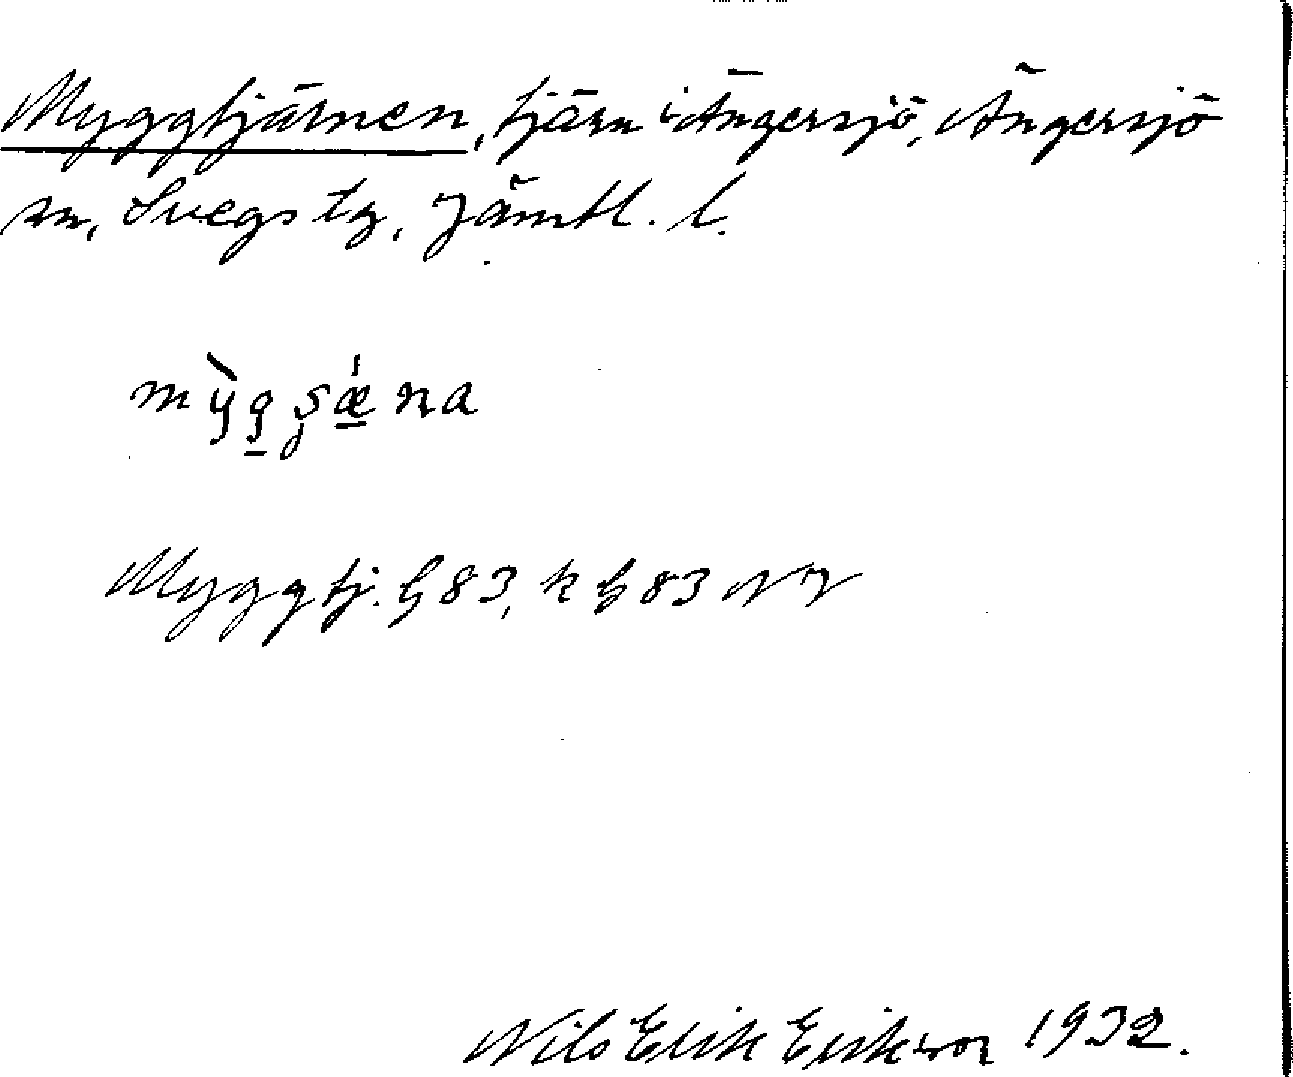 Myggtjärnen, tjärn i Ängersjö, Ängersjö
sn, Svegs tg, Jämtl. l.
Myggtj. G 83, k G 83 NV
Nils Erik Erikson 1932.